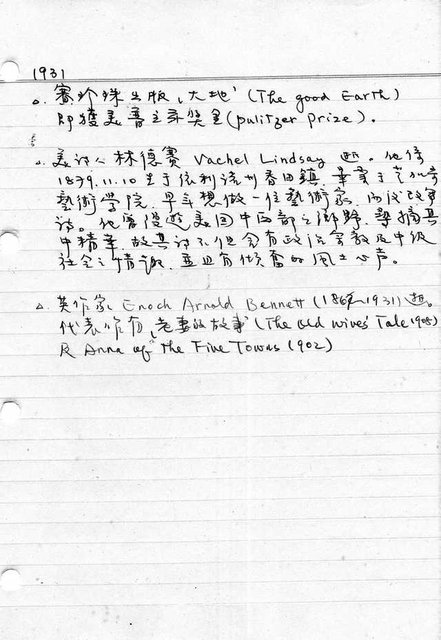 1931
△. 賽珍珠出版、大地' (The good Earth)
即獲美普立茲獎金 (pulitzer prize).
△. 美詩人林德賽 Vachel Lindsay 逝。他係
1879.11.10 生于依利諾州春田鎮, 畢業于芝加哥
藝術學院, 早年想做一位藝術家, 而後改寫
詩。他曾漫遊美国中西部之鄉野, 摘其
中精華, 故其詩不但含有政治宗教及中級
社会之情調, 並且有傾奮的風土心声。
△ 英作家 Enoch Arnold Bennett (1867-1931) 逝。
代表作有、老妻的故事' (The Old Wives' Tale 1908)
及 Anna of the Five Towns (1902)